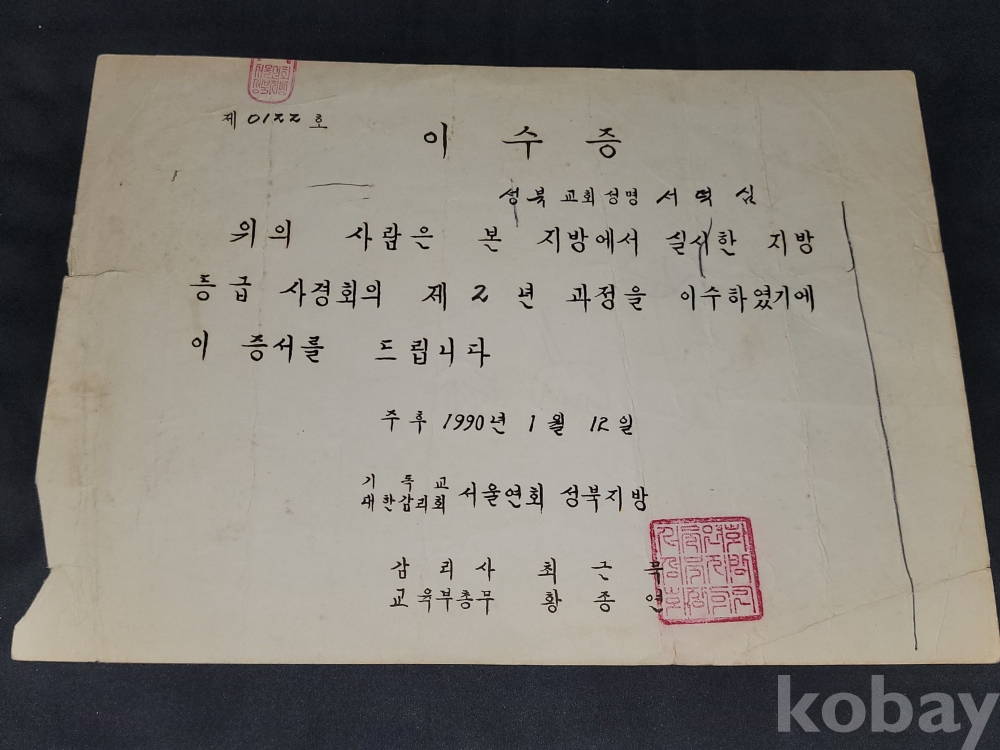 제 0122 호
이 수 증
성북 교회 성명 서 덕 심
위의 사람은 본 지방에서 실시한 지방
등급 사경회의 제 2 년 과정을 이수하였기에
이 증서를 드립니다
주후 1990년 1월 12일
기독교
대한감리회 서울연회 성북지방
감리사 최근묵
교육부총무 황종연
kobay